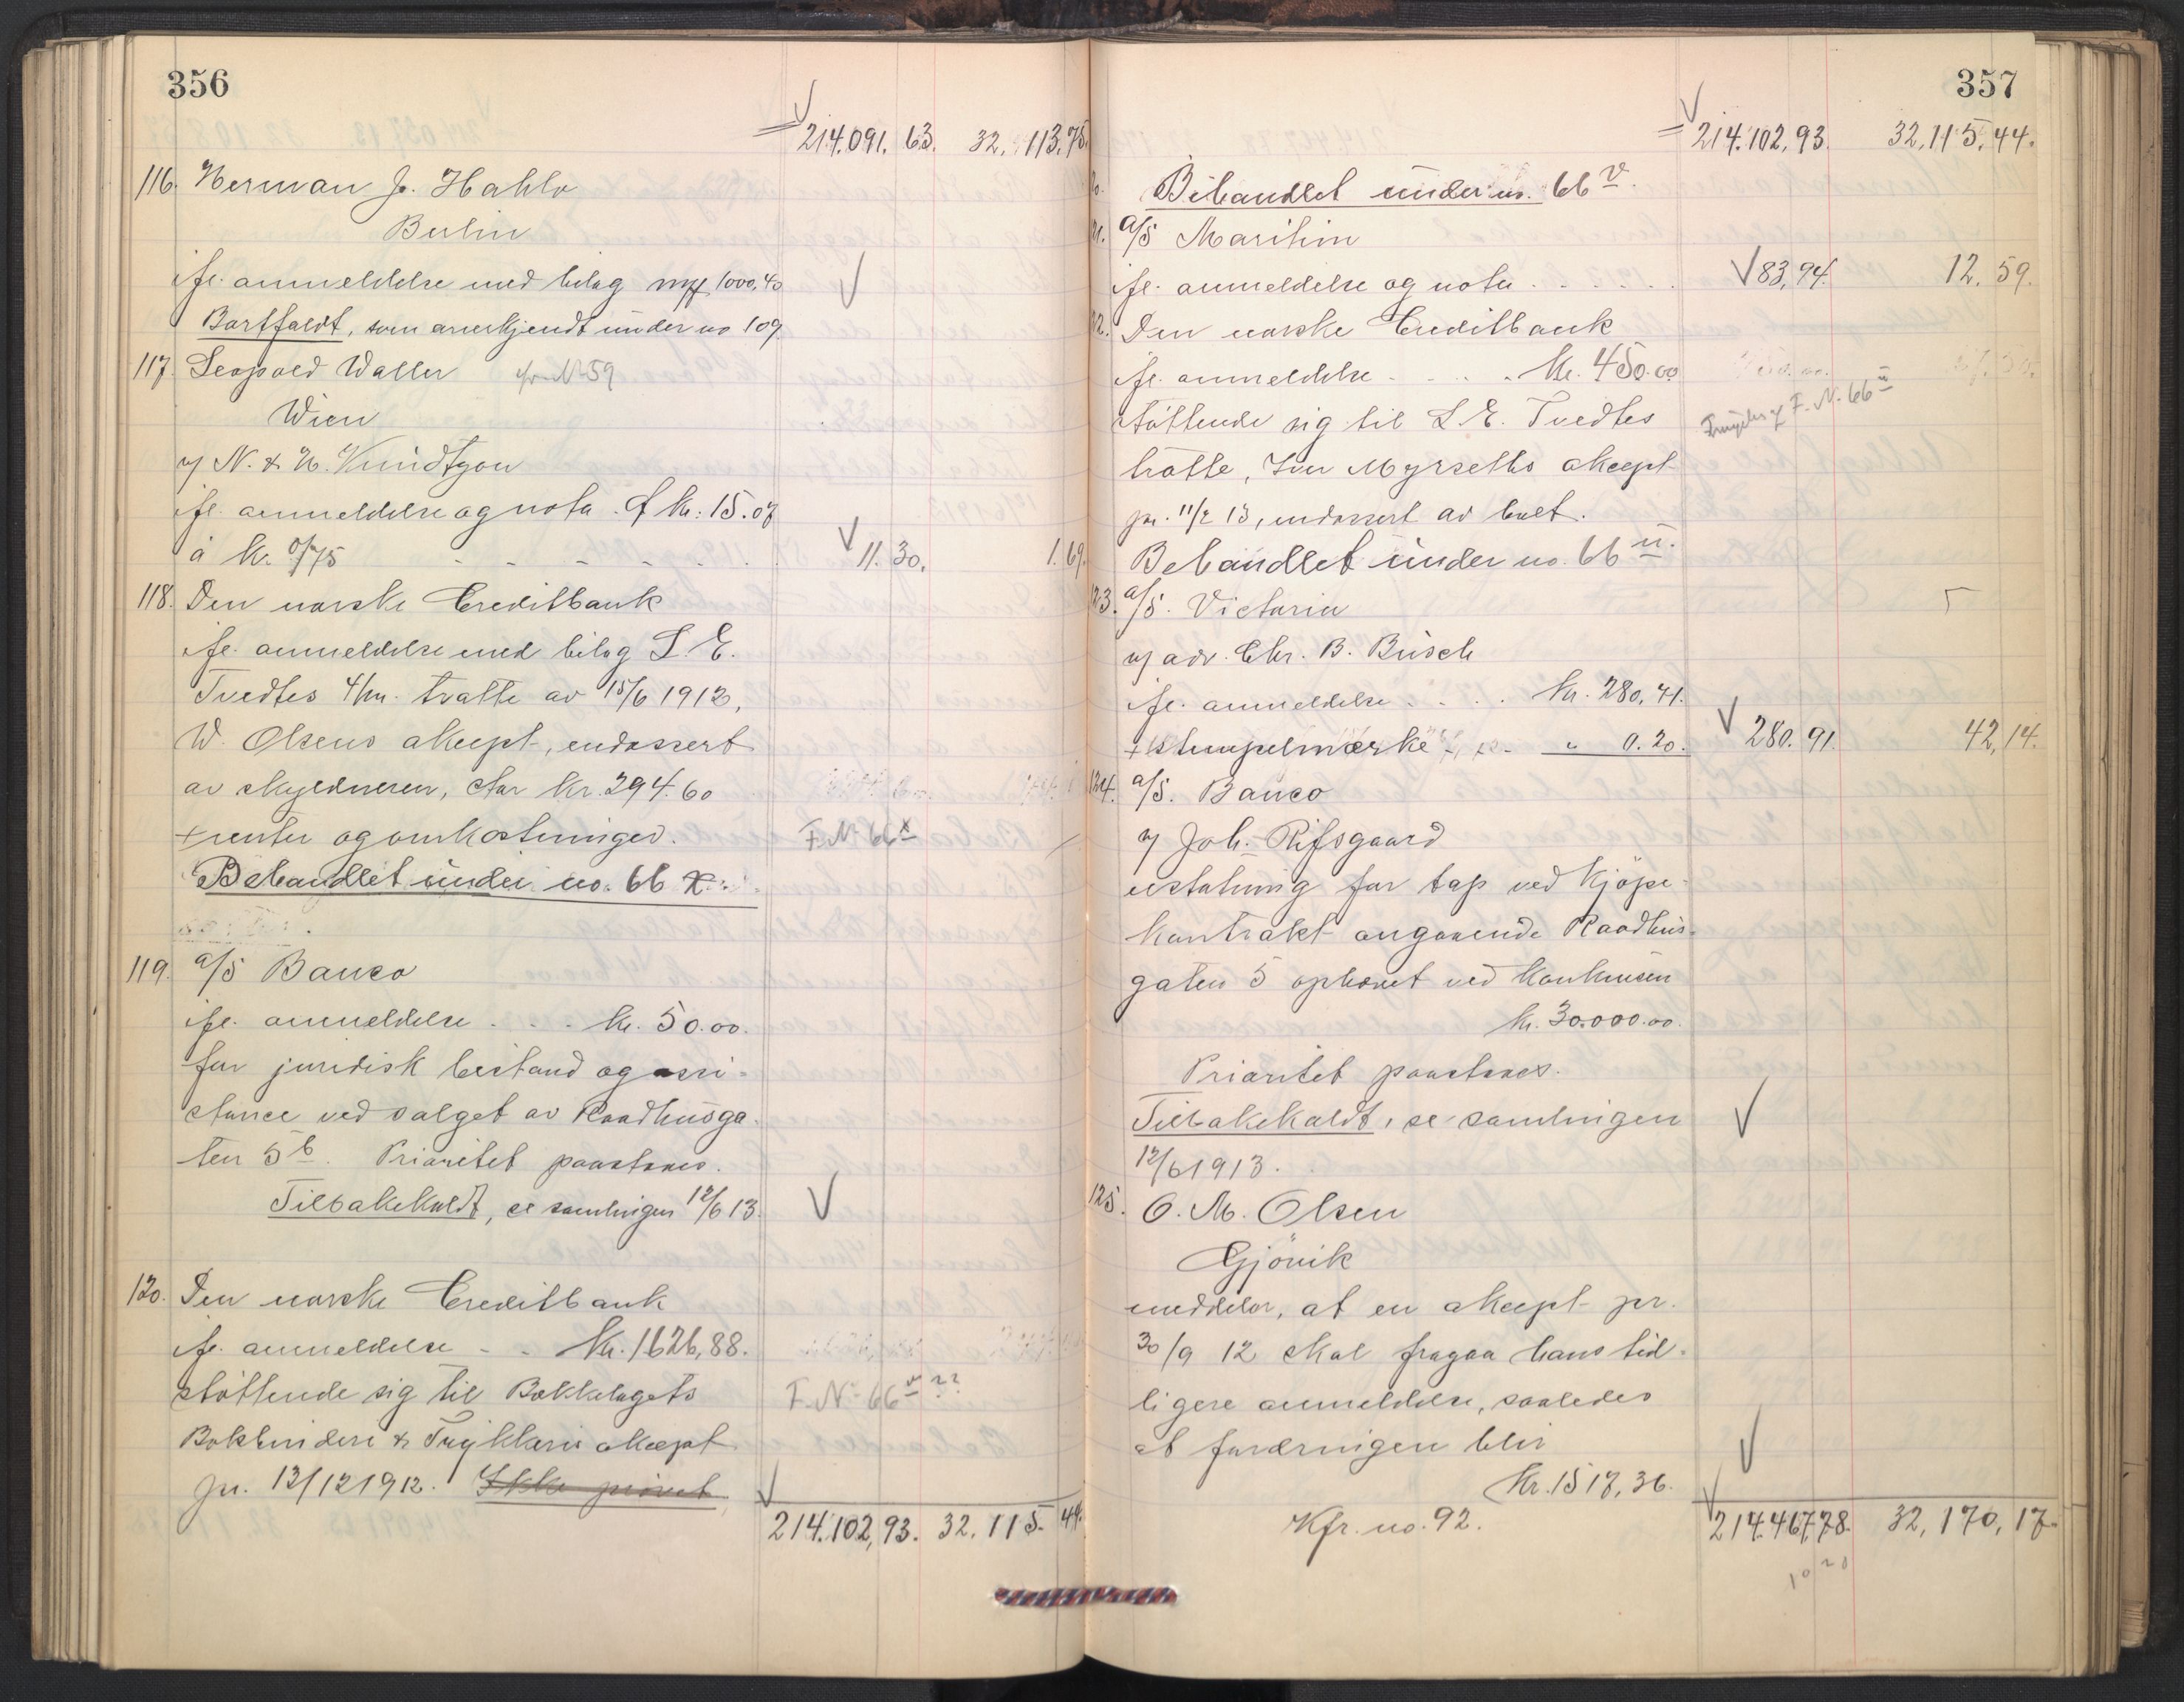 356
214.091. 63. 32. 113.75.
116. Herman J. Hahlo
Berlin
ifl. anmeldelse med bilag mk 1000,40
Bortfaldt, som anerkjendt under no 109.
117. Leopold Waller cfr. No 59
Wien
v/ N. & N.
ifl. anmeldelse og nota. kr: 15.07
à kr. 0/75 - - - - - 11. 30. 1.69.
118. Den norske Creditbank
ifl. anmeldelse med bilag L. E.
Tvedtes 4/m. tratte av 15/6 1912,
W. Olsens aksept, endossert
av skyldneren, stor kr. 294.60
+ renter og omkostninger. F. No 66 x
Behandlet under no. 66 x.
119. a/S Banco
ifl. anmeldelse . . . kr. 50.00.
for juridisk bistand og assi-
stance ved salget av Raadhusga-
ten 5 b. Prioritet paastaaes.
Tilbakekaldt, se samlingen 12/6 13.
120. Den norske Creditbank
ifl. anmeldelse - . Kr. 1626,88.
støttende sig til Bokkelagets F. No 66 v ??
Bokbinderi & Trykkeris aksept
pr. 13/12 1912. Ikke prøvet.
214.102,93. 32. 115. 44.
357
214.102,93. 32,115,44.
Behandlet under no. 66 v.
21. a/S Maritim
ifl. anmeldelse og nota . . . . . . 83,94. 12. 59.
22. Den norske Creditbank
ifl. anmeldelse . . . . Kr. 450.00
støttende sig til L. E. Tvedtes F. N. 66 u
tratte, Iver Myrseths aksept
pr. 11/2 13, endossert av boet.
Behandlet under no. 66 u.
123. a/S. Victoria
v/ adv. Chr. B. Busch
ifl. anmeldelse . . . . Kr. 280,71.
+ stempelmærke " 0.20. 280. 91. 42,14.
124. a/S. Banco
v/ Joh. Rifsgaard
erstatning for tap ved kjøpe-
kontrakt angaaende Raadhus-
gaten 5 ophævet ved konkursen
kr. 30.000.00.
Prioritet paastaaes.
Tilbakekaldt, se samlingen
12/6 1913.
125. O. M. Olsen
Gjövik
meddeler, at en aksept pr.
30/9 12 skal fragaa hans tid-
ligere anmeldelse, saaledes
at fordringen blir
Kr. 1517,36.
Kfr. no. 92. 214.467,78. 32,170,17.